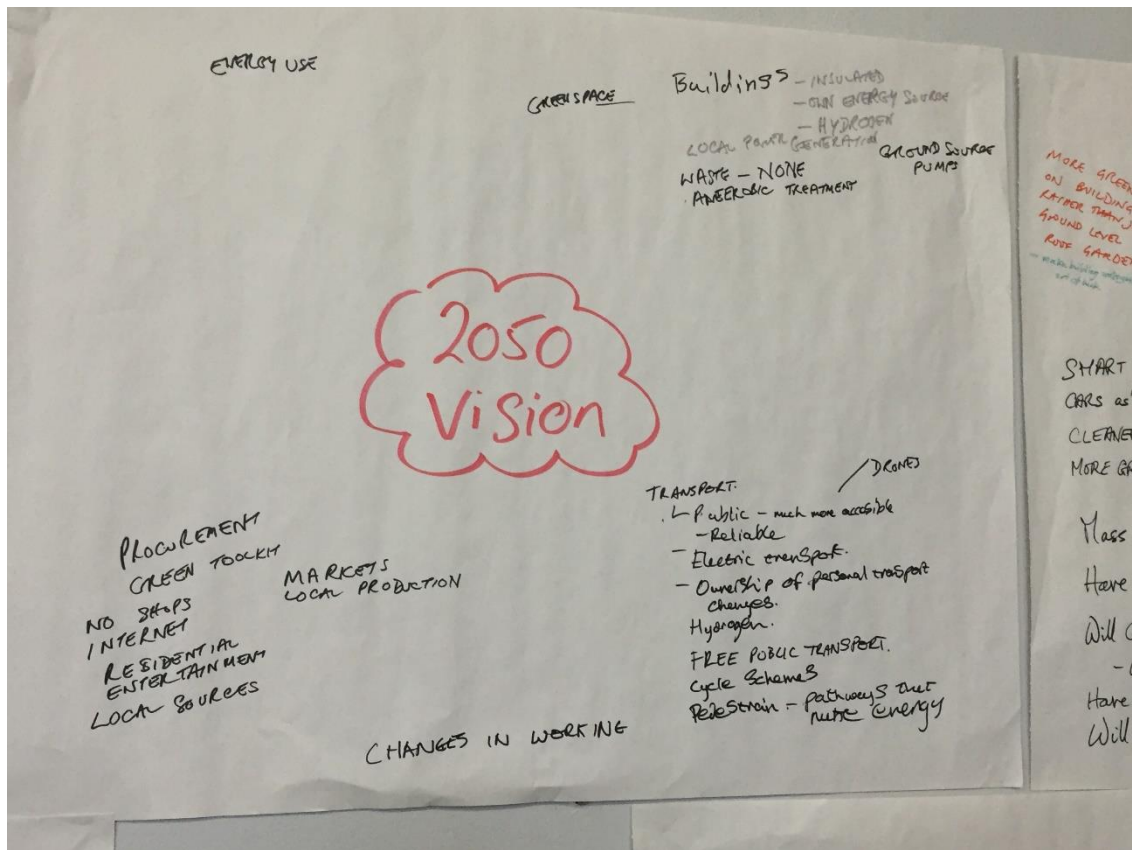 ENERGY USE
GREENSPACE
Buildings - INSULATED
- OWN ENERGY SOURCE
- HYDROGEN
LOCAL POWER GENERATION
GROUND SOURCE
PUMPS
WASTE - NONE
. ANEEROBIC TREATMENT
2050
Vision
PROCUREMENT
GREEN TOOLKIT
NO SHOPS
INTERNET
RESIDENTIAL
ENTERTAINMENT
LOCAL SOURCES
MARKETS
LOCAL PRODUCTION
CHANGES IN WORKING
DRONES
TRANSPORT.
Public - much more accesible
- Reliable
- Electric transport.
- Ownership of personal transport
changes.
Hydrogen.
FREE PUBLIC TRANSPORT.
Cycle Schemes
Pedestrain - pathways that
energy
MORE GREEN
ON BUILDING
RATHER THAN
GROUND LEVEL
ROOF GARDE
SMART
CARS as
CLEANE
MORE GR
Mass
Have
Will
Have
Will